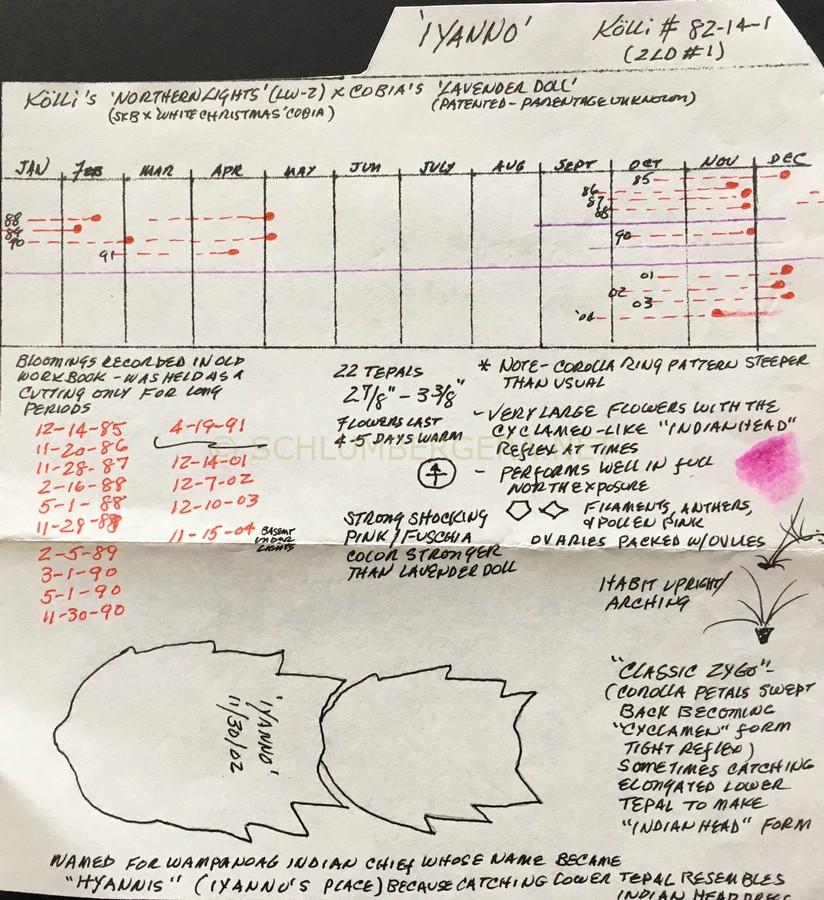 'IYANNO' Kölli # 82-14-1
(2LD#1)
Kölli's 'NORTHERN LIGHTS' (LW-2) x COBIA'S 'LAVENDER DOLL'
(SxB x 'WHITE CHRISTMAS' COBIA) (PATENTED - PARENTAGE UNKNOWN)
JAN FEB MAR APR MAY JUN JULY AUG SEPT OCT NOV DEC
85
86
87
88
88
89
90
90
91
01
02
03
'04
BLOOMINGS RECORDED IN OLD
WORK BOOK - WAS HELD AS A
CUTTING ONLY FOR LONG
PERIODS
12-14-85
11-20-86
11-28-87
2-16-88
5-1-88
11-29-88
2-5-89
3-1-90
5-1-90
11-30-90
4-19-91
12-14-01
12-7-02
12-10-03
11-15-04 BASEMT
UNDER
LIGHTS
22 TEPALS
2 7/8" - 3 3/8"
FLOWERS LAST
4-5 DAYS WARM
STRONG SHOCKING
PINK/FUSCHIA
COLOR STRONGER
THAN LAVENDER DOLL
* NOTE - COROLLA RING PATTERN STEEPER
THAN USUAL
- VERY LARGE FLOWERS WITH THE
CYCLAMED-LIKE "INDIANHEAD"
REFLEX AT TIMES
- PERFORMS WELL IN FULL
NORTH EXPOSURE
FILAMENTS, ANTHERS,
& POLLEN PINK
OVARIES PACKED W/OVULES
HABIT UPRIGHT/
ARCHING
"CLASSIC ZYGO"-
(COROLLA PETALS SWEPT
BACK BECOMING
"CYCLAMEN" FORM
TIGHT REFLEX)
SOMETIMES CATCHING
ELONGATED LOWER
TEPAL TO MAKE
"INDIAN HEAD" FORM
'IYANNO'
11/30/02
NAMED FOR WAMPANOAG INDIAN CHIEF WHOSE NAME BECAME
"HYANNIS" (IYANNO'S PLACE) BECAUSE CATCHING LOWER TEPAL RESEMBLES
INDIAN HEADDRESS
© SCHLUMBERGERA.NET